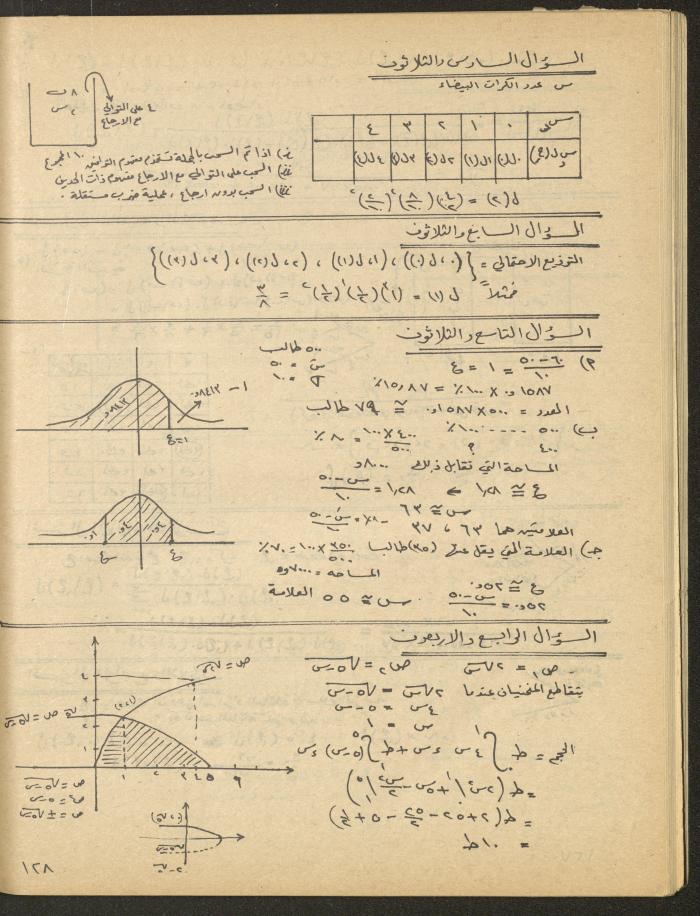 السؤال السادس والثلاثون
س عدد الكرات البيضاء
٨ ف
٢ س
٤ على التوالي
مع الارجاع
س ٠ ١ ٢ ٣ ٤
٠ل(٠) ١ل(١) ٢ل(٢) ٣ل(٣) ٤ل(٤)
اذا تم السحب بالجملة نستخدم مفهوم التوافق
السحب على التوالي مع الارجاع مفهوم ذات الحدين
السحب بدون ارجاع ، عملية ضرب مستقلة .
ل(٢) = (٤ ٢) (٨/١٠)٢ (٢/١٠)٢
السؤال السابع والثلاثون
التوزيع الاحتمالي = {(٠، ل(٠)) ، (١، ل(١)) ، (٢، ل(٢)) ، (٣، ل(٣))}
فمثلاً ل(١) = (٣ ١) (١/٢)١ (١/٢)٢ = ٣/٨
السؤال التاسع والثلاثون
٥٠٠ طالب
س = ٥٠
σ = ١٠
م) ٦٠ – ٥٠ / ١٠ = ١ = ع
١٥٨٧و. × ١٠٠٪ = ١٥٫٨٧٪
العدد = ٥٠٠ × ١٥٨٧و. ≅ ٧٩ طالب
١ – ٨٤١٣و
٨٤١٣و
ع=١
ب) ٥٠٠ - - - - ١٠٠٪
٤٠٠ ؟ ٤٠٠ × ١٠٠ / ٥٠٠ = ٨٠٪
المساحة التي تقابل ذلك ٨٠٠٠و
ع ≅ ١٫٢٨ ← ١٫٢٨ = س – ٥٠ / ١٠
س ≅ ٦٣
العلامتين هما ٦٣ ، ٣٧
جـ) العلامة التي يقل عنها (٣٥٠) طالبا ٣٥٠/٥٠٠ × ١٠٠ = ٧٠٪
المساحه = ٧٠٠٠و
ع ≅ ٥٢و.
٥٢و. = س – ٥٠ / ١٠ س ≅ ٥٥ العلامة
السؤال الرابع والاربعون
ص١ = ٢√س ص٢ = √٥–س
يتقاطع المنحنيان عندما ٢√س = √٥–س
٤س = ٥ – س
س = ١
الحجم = ط ∫ ٤س ءس + ط ∫ (٥–س) ءس
= ط (٢س٢ | + ٥س – س٢/٢ |)
= ط (٢ + ٢٥ – ٢٥/٢ – ٥ + ١/٢)
= ١٠ط
ص = √٥–س
ص٢ = ٥–س
ص = ± √٥–س
١٢٨